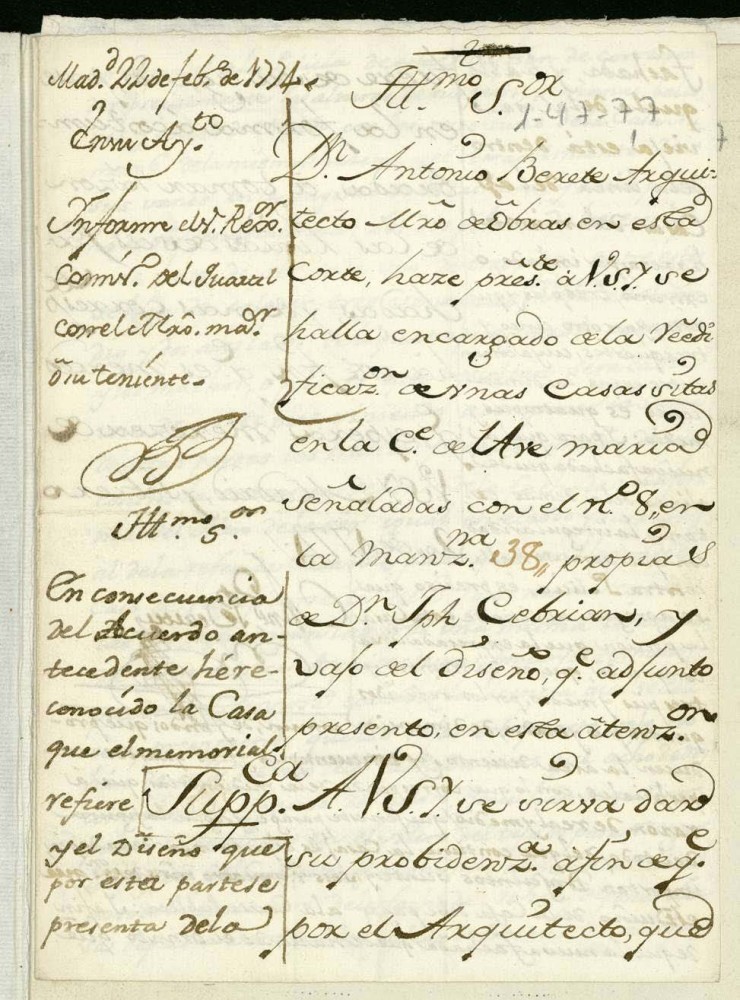 Mad.d 22 de feb.o de 1774.
En su Ay.to
Informe el S.r Rexor.
Comis.o del Quartel
con el Mrô. mâd.r
ô su teniente.
Ill.mo S.or
En consecuencia
del Acuerdo an-
tecedente hé re-
conocido la Casa
que el memorial
refiere
y el Diseño que
por esta parte se
presenta de la
Ill.mo S.or
1-47-77
D.n Antonio Berete Arqui-
tecto Mrô de Obras en esta
Corte, haze pres.te à V.S.Y. se
halla encargado de la Reedi
ficaz.on de Vnas Casas sitas
en la C.e del Ave maria
señaladas con el n.o 8,, en
la Manz.na 38,, propias
de D.n Jph Cebrian, y
vajo del Diseño, q.e adjunto
presento, en esta àtenz.on
Supp.ca A. V.S.Y. se sirva dar
su probidenz.a afin de q.e
por el Arquitecto, que